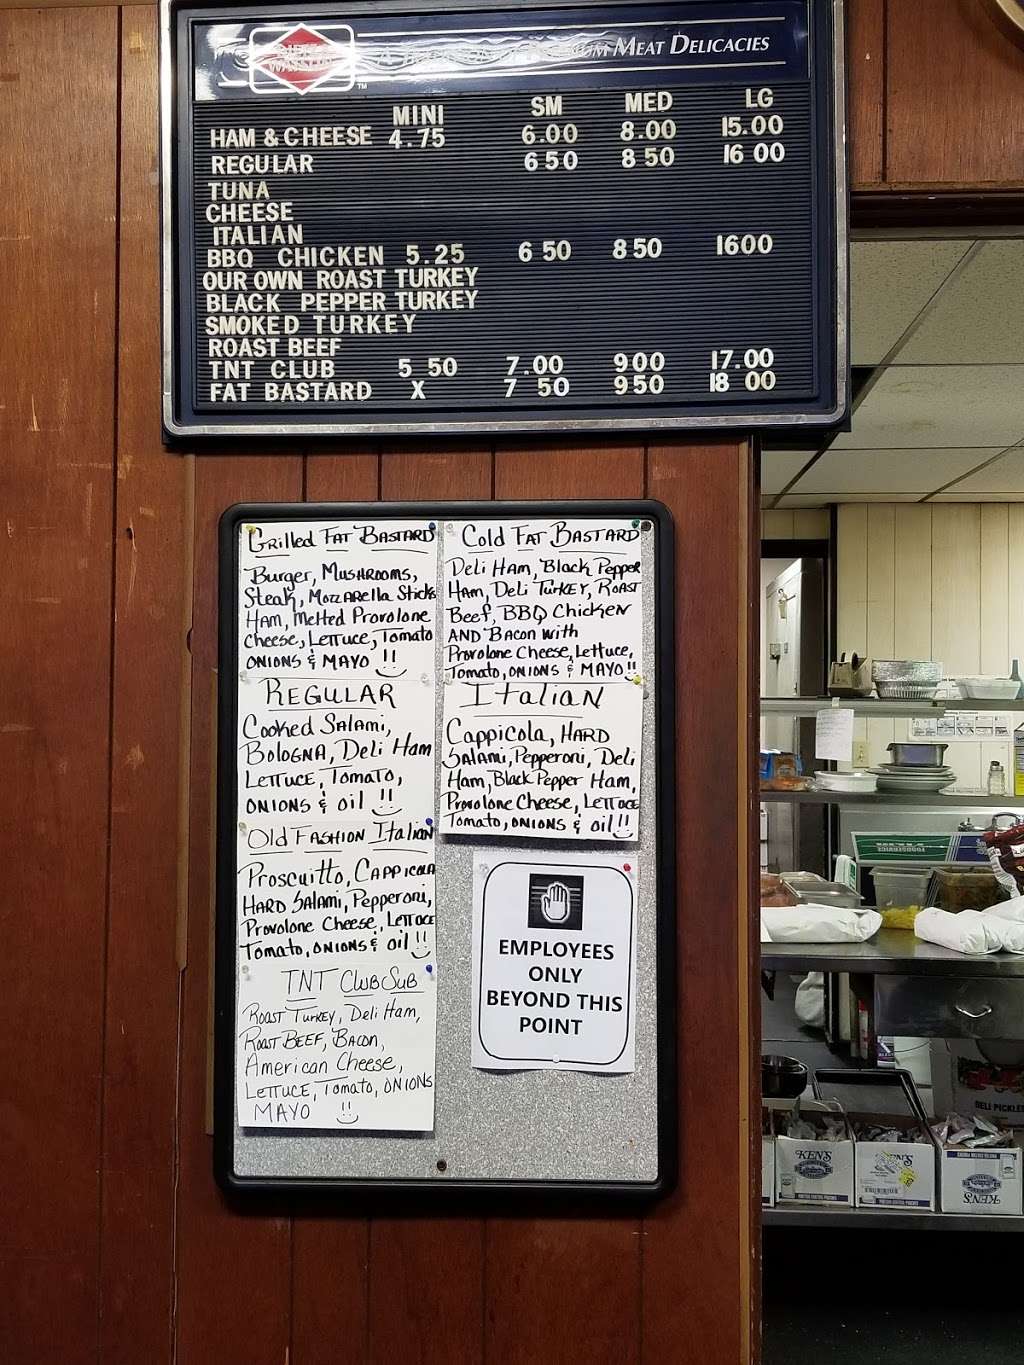 DIETZ & WATSON
A TRADITION OF PREMIUM MEAT DELICACIES
MINI SM MED LG
HAM & CHEESE 4.75 6.00 8.00 15.00
REGULAR 6 50 8 50 16 00
TUNA
CHEESE
ITALIAN
BBQ CHICKEN 5.25 6 50 8 50 1600
OUR OWN ROAST TURKEY
BLACK PEPPER TURKEY
SMOKED TURKEY
ROAST BEEF
TNT CLUB 5 50 7.00 900 17.00
FAT BASTARD X 7 50 950 18 00
Grilled FAT BASTARD
Burger, MUSHROOMS,
Steak, MOZZARella Sticks
HAM, Melted Provolone
Cheese, Lettuce, Tomato
ONIONS & MAYO !!
Cold FAT BASTARD
Deli Ham, Black Pepper
Ham, Deli TURKEY, ROAST
Beef, BBQ Chicken
AND Bacon with
Provolone Cheese, Lettuce,
Tomato, ONIONS & MAYO!!
REGULAR
Cooked Salami,
BOLOGNA, Deli Ham
LETTUCE, TOMATO,
ONIONS & oil !!
Italian
Cappicola, HARD
Salami, Pepperoni, Deli
Ham, Black Pepper Ham,
Provolone Cheese, LETTUCE
Tomato, ONIONS & oil!!
Old FASHION Italian
Proscuitto, CAPPICOLA
HARD Salami, Pepperoni,
Provolone Cheese, LETTUCE
Tomato, ONIONS & oil !!
TNT Club Sub
ROAST TURKEY, Deli Ham,
ROAST BEEF, BACON,
American Cheese,
LETTUCE, Tomato, ONIONS
MAYO !!
EMPLOYEES
ONLY
BEYOND THIS
POINT
DELI PICKLE
KEN'S
KEN'S
KEN'S